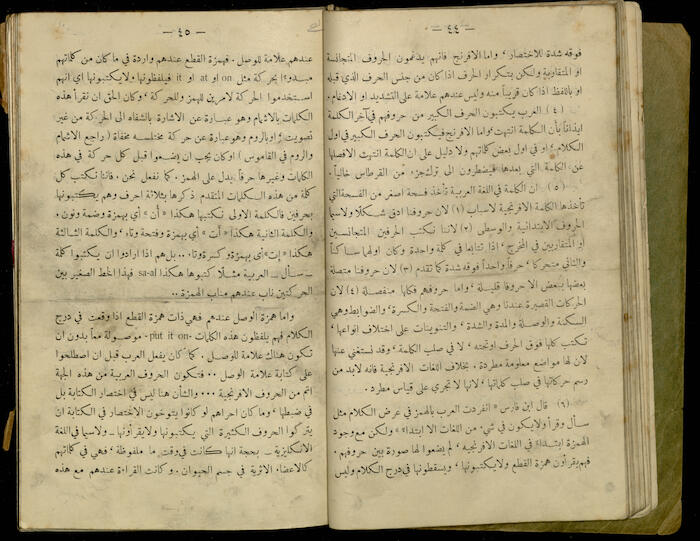 — ٤٤ —
فوقه شدة للاختصار ، واما الافرنج فانهم يدغمون الحروف المتجانسة
او المتقاربة ولكن بتكرار الحرف اذا كان من جنس الحرف الذي قبله
او باللفظ اذا كان قريباً منه وليس عندهم علامة على التشديد او الادغام .
( ٤ ) العرب يكتبون الحرف الكبير من حروفهم في آخر الكلمة
ايذاناً بأن الكلمة انتهت واما الافرنج فيكتبون الحرف الكبير في اول
الكلام ، او في اول بعض كلماتهم ولا دليل على ان الكلمة انتهت الا فصلها
عن الكلمة التي بعدها فيضطرون الى ترك جزء من القرطاس خالياً .
( ٥ ) ان الكلمة في اللغة العربية تأخذ فسحة اصغر من الفسحة التي
تأخذها الكلمة الافرنجية لاسباب (١) لان حروفنا ادق شكلا ولاسيما
الحروف الابتدائية والوسطى (٢) لاننا نكتب الحرفين المتجانسين
او المتقاربين في المخرج ، اذا تتابعا في كلمة واحدة وكان اولهما ساكناً
والثاني متحركا ، حرفاً واحداً فوقه شدة كما تقدم (٣) لان حروفنا متصلة
بعضها ببعض الا حروفا قليلة ، واما حروفهم فكلها منفصلة (٤) لان
الحركات القصيرة عندنا وهي الضمة والفتحة والكسرة ، والضوابط وهي
السكنة والوصلة والمدة والشدة ، والتنوينات على اختلاف انواعها ،
تكتب كلها فوق الحرف او تحته ، لا في صلب الكلمة ، وقد نستغني عنها
لان لها مواضع معلومة مطردة . بخلاف اللغات الافرنجية فانه لابد من
رسم حركاتها في صلب كلماتها ، لانها لا تجري على قياس مطرد .
( ٦ ) قال ابن فارس « انفردت العرب بالهمز في عرض الكلام مثل
سأل وقرأ ولا يكون في شيء من اللغات الا ابتداءً » ولكن مع وجود
الهمزة ابتداءً في اللغات الافرنجية ، لم يضعوا لها صورة بين حروفهم .
فهم يقرأون همزة القطع ولا يكتبونها ، ويسقطونها في درج الكلام وليس
— ٤٥ —
عندهم علامة للوصل . فهمزة القطع عندهم واردة في ما كان من كلماتهم
مبدوءاً بحركة مثل on او at او it فيلفظونها ولا يكتبونها اي انهم
استخدموا الحركة لامرين للهمز وللحركة ، وكان الحق ان نقرأ هذه
الكلمات بالاشمام وهو عبارة عن الاشارة بالشفاه الى الحركة من غير
تصويت ، او بالروم وهو عبارة عن حركة مختلسه مخفاة ( راجع الاشمام
والروم في القاموس ) او كان يجب ان يضعوا قبل كل حركة في هذه
الكلمات وغيرها حرفاً يدل على الهمز . كما نفعل نحن . فاننا نكتب كل
كلمة من هذه الكلمات المتقدم ذكرها بثلاثة احرف وهم يكتبونها
بحرفين فالكلمة الاولى نكتبها هكذا « أُن » أي بهمزة وضمة ونون .
والكلمة الثانية هكذا « أَت » أي بهمزة وفتحة وتاء ، والكلمة الثالثة
هكذا « إِت » أي بهمزة وكسرة وتاء .. بل هم اذا ارادوا ان يكتبوا كلمة
ـ سأل ـ العربية مثلاً كتبوها هكذا sa-al فهذا الخط الصغير بين
الحركتين ناب عندهم مناب الهمزة ..
واما همزة الوصل عندهم فهي ذات همزة القطع اذا وقعت في درج
الكلام فهم يلفظون هذه الكلمات -put it on- موصولة معاً بدون ان
تكون هناك علامة للوصل . كما كان يفعل العرب قبل ان اصطلحوا
على كتابة علامة الوصل .. فتكون الحروف العربية من هذه الجهة
اتم من الحروف الافرنجية ... والشأن هنا ليس في اختصار الكتابة بل
في ضبطها ، وما كان احراهم لو كانوا يتوخون الاختصار في الكتابة ان
يتركوا الحروف الكثيرة التي يكتبونها ولا يقرأونها ـ ولاسيما في اللغة
الانكليزية ـ بحجة انها كانت في وقت ما ملفوظة ، فهي في كلماتهم
كالاعضاء الاثرية في جسم الحيوان . وكانت القراءة عندهم مع هذه